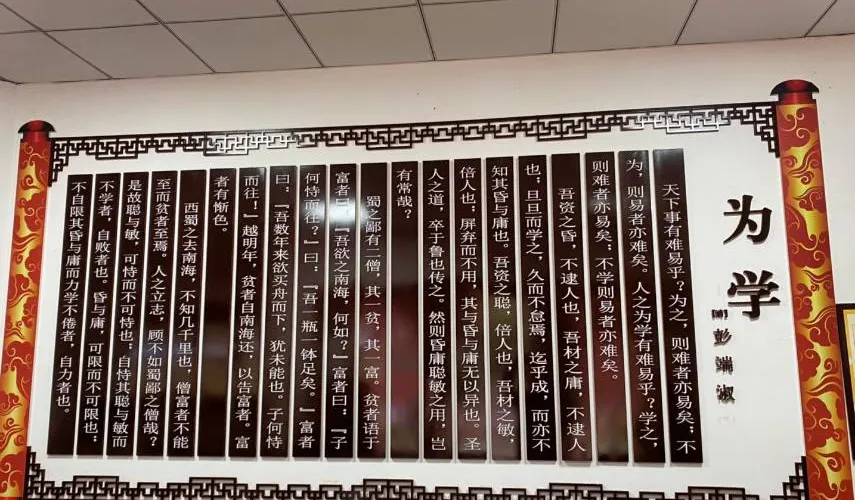 为学
[清] 彭端淑
天下事有难易乎？为之，则难者亦易矣；不
为，则易者亦难矣。人之为学有难易乎？学之，
则难者亦易矣；不学则易者亦难矣。
吾资之昏，不逮人也，吾材之庸，不逮人
也；旦旦而学之，久而不怠焉，迄乎成，而亦不
知其昏与庸也。吾资之聪，倍人也，吾材之敏，
倍人也；屏弃而不用，其与昏与庸无以异也。圣
人之道，卒于鲁也传之。然则昏庸聪敏之用，岂
有常哉？
蜀之鄙有二僧，其一贫，其一富。贫者语于
富者曰：『吾欲之南海，何如？』富者曰：『子
何恃而往？』曰：『吾一瓶一钵足矣。』富者
曰：『吾数年来欲买舟而下，犹未能也。子何恃
而往！』越明年，贫者自南海还，以告富者。富
者有惭色。
西蜀之去南海，不知几千里也，僧富者不能
至而贫者至焉。人之立志，顾不如蜀鄙之僧哉？
是故聪与敏，可恃而不可恃也；自恃其聪与敏而
不学者，自败者也。昏与庸，可限而不可限也；
不自限其昏与庸而力学不倦者，自力者也。